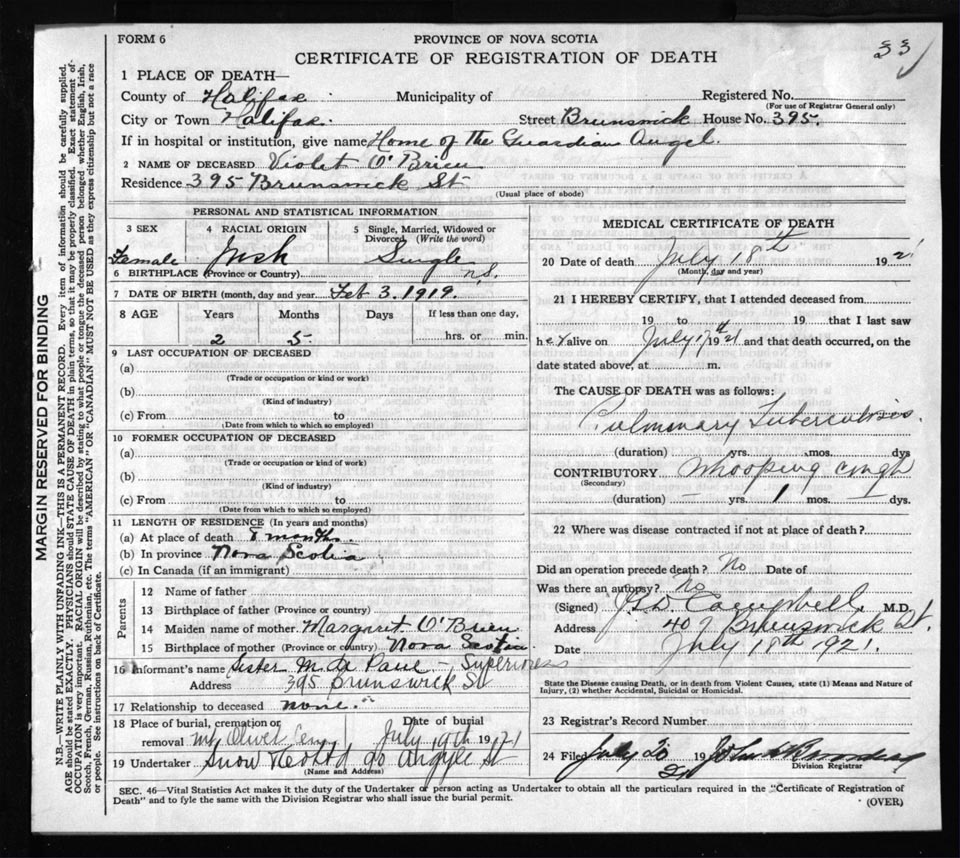 FORM 6
PROVINCE OF NOVA SCOTIA
33
CERTIFICATE OF REGISTRATION OF DEATH
1 PLACE OF DEATH—
County of Halifax Municipality of Registered No.
(For use of Registrar General only)
City or Town Halifax. Street Brunswick House No. 395.
If in hospital or institution, give name Home of the Guardian Angel.
2 NAME OF DECEASED Violet O'Brien
Residence 395 Brunswick St
(Usual place of abode)
PERSONAL AND STATISTICAL INFORMATION
3 SEX 4 RACIAL ORIGIN 5 Single, Married, Widowed or Divorced, (Write the word)
Female Irish Single
6 BIRTHPLACE (Province or Country) N.S.
7 DATE OF BIRTH (month, day and year) Feb 3. 1919.
8 AGE Years Months Days If less than one day,
2 5 hrs. or min.
9 LAST OCCUPATION OF DECEASED
(a)
(Trade or occupation or kind or work)
(b)
(Kind of industry)
(c) From to
(Date from which to which so employed)
10 FORMER OCCUPATION OF DECEASED
(a)
(Trade or occupation or kind of work)
(b)
(Kind of industry)
(c) From to
(Date from which to which so employed)
11 LENGTH OF RESIDENCE (In years and months)
(a) At place of death 8 months.
(b) In province Nova Scotia
(c) In Canada (if an immigrant)
Parents
12 Name of father
13 Birthplace of father (Province or country)
14 Maiden name of mother Margaret O'Brien
15 Birthplace of mother (Province or country) Nova Scotia
16 Informant's name Sister M. de Paul – Superioress
Address 395 Brunswick St
17 Relationship to deceased none.
18 Place of burial, cremation or removal Mt Olivet Cem Date of burial July 19th 1921
19 Undertaker Snow & Co Ltd 90 Argyle St
(Name and Address)
MEDICAL CERTIFICATE OF DEATH
20 Date of death July 18th 1921
(Month, day and year)
21 I HEREBY CERTIFY, that I attended deceased from
19 to 19 that I last saw
her alive on July 17th 1921 and that death occurred, on the
date stated above, at m.
The CAUSE OF DEATH was as follows:
Pulmonary Tuberculosis.
(duration) yrs. mos. dys
CONTRIBUTORY Whooping cough
(Secondary)
(duration) – yrs. 1 mos. – dys.
22 Where was disease contracted if not at place of death?
Did an operation precede death? No Date of
Was there an autopsy? No
(Signed) Campbell M.D.
Address 407 Brunswick St.
Date July 18th 1921.
State the Disease causing Death, or in death from Violent Causes, state (1) Means and Nature of
Injury, (2) whether Accidental, Suicidal or Homicidal.
23 Registrar's Record Number
24 Filed July 20 19 21 John
Division Registrar
SEC. 46—Vital Statistics Act makes it the duty of the Undertaker or person acting as Undertaker to obtain all the particulars required in the "Certificate of Registration of
Death" and to fyle the same with the Division Registrar who shall issue the burial permit.
(OVER)
MARGIN RESERVED FOR BINDING
N.B.—WRITE PLAINLY WITH UNFADING INK—THIS IS A PERMANENT RECORD. Every item of information should be carefully supplied.
AGE should be stated EXACTLY. PHYSICIANS should STATE CAUSE OF DEATH in plain terms, so that it may be properly classified. Exact statement of
OCCUPATION is very important. RACIAL ORIGIN will be described by stating to what people or tongue the deceased person belonged whether English, Irish,
Scotch, French, German, Russian, Ruthenian, etc. The terms "AMERICAN" or "CANADIAN" MUST NOT BE USED as they express citizenship but not a race
or people. See instructions on back of Certificate.